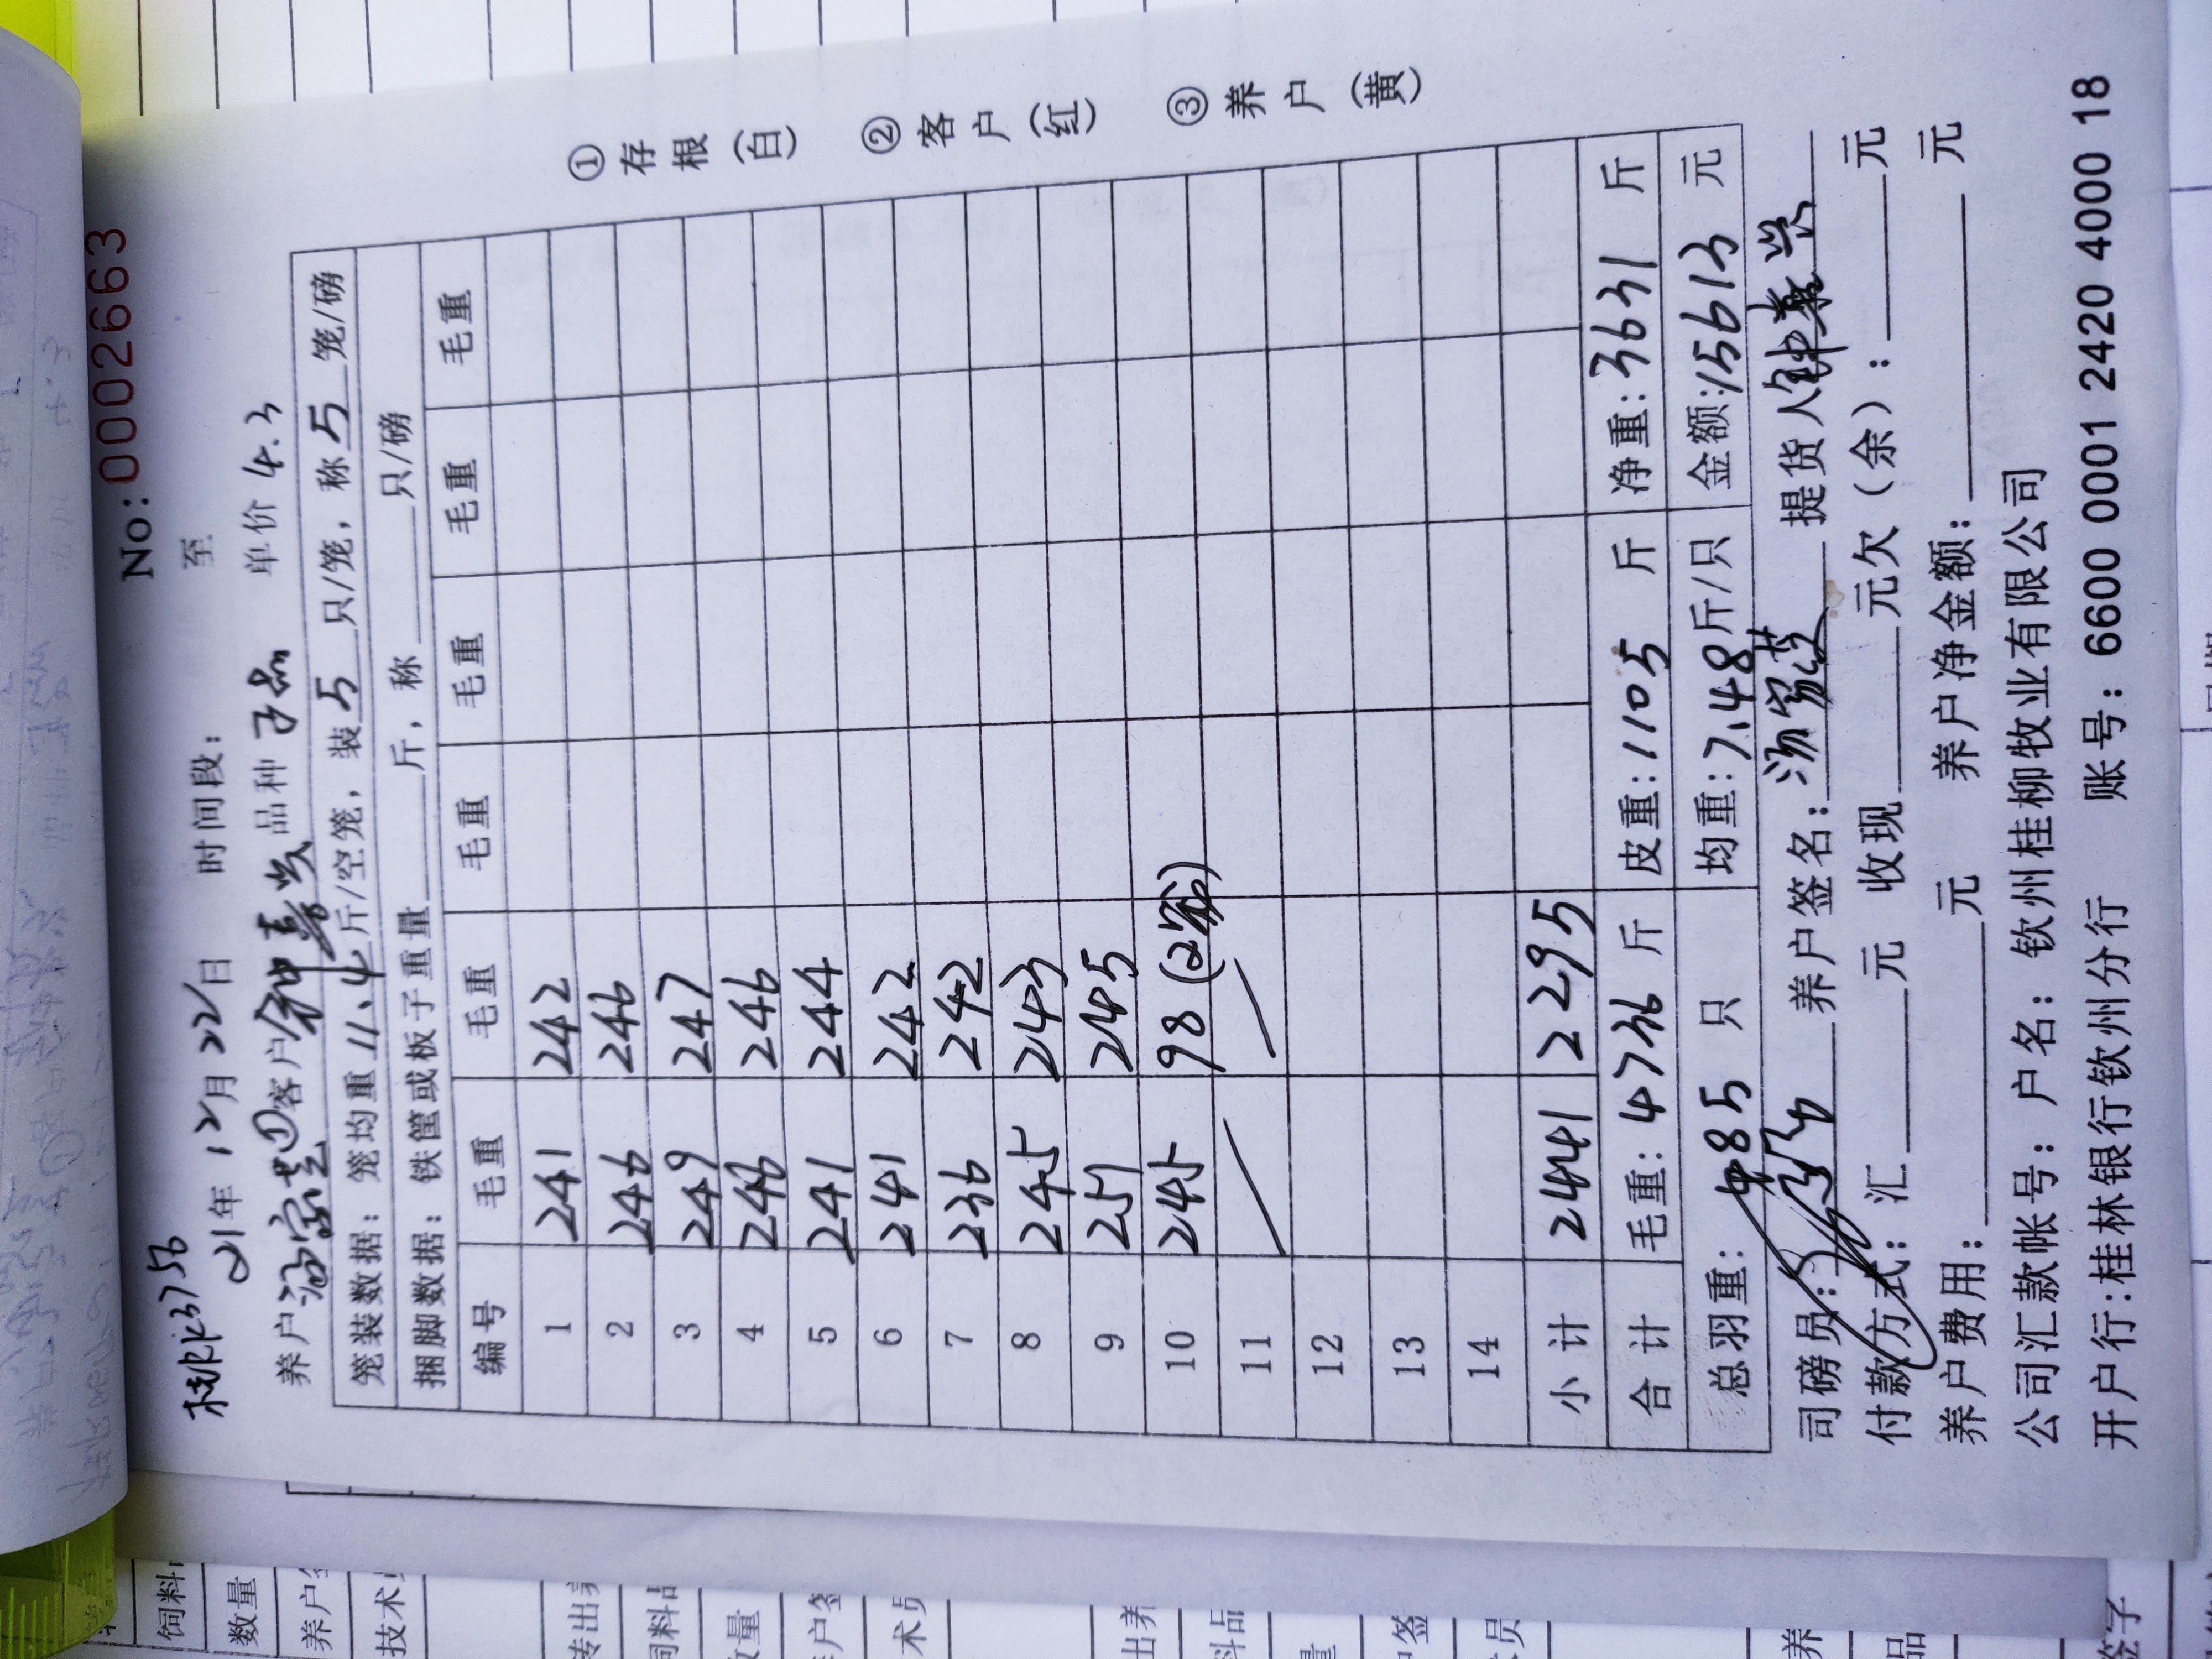 No:0002663
桂N·K3756
21年 12月 22日 时间段: 至
养户 汤家芸① 客户 钟嘉兴 品种 子品 单价 4.3
笼装数据: 笼均重 11.4 斤/空笼, 装 5 只/笼, 称 5 笼/磅
捆脚数据: 铁筐或板子重量 斤, 称 只/磅
编号 毛重 毛重 毛重 毛重 毛重 毛重
1 241 242
2 246 246
3 249 247
4 246 246
5 241 244
6 241 242
7 236 242
8 245 243
9 251 245
10 245 98 (2笼)
11
12
13
14
小计 2441 2295
合计 毛重: 4736 斤 皮重: 1105 斤 净重: 3631 斤
总羽重: 485 只 均重: 7.48 斤/只 金额: 15613 元
司磅员: 养户签名: 汤家芸 提货人 钟嘉兴
付款方式: 汇 元 收现 元欠(余): 元
养户费用: 元 养户净金额: 元
公司汇款帐号: 户名: 钦州桂柳牧业有限公司
开户行:桂林银行钦州分行 账号: 6600 0001 2420 4000 18
①存根(白) ②客户(红) ③养户(黄)
饲料
数量
养户签
技术员
转出养
饲料品
数量
户签
术员
出养
料品
量
签字